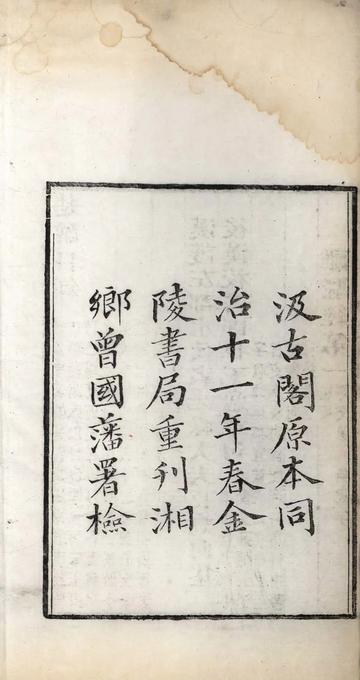 汲古閣原本同
治十一年春金
陵書局重刋湘
鄉曾國藩署檢